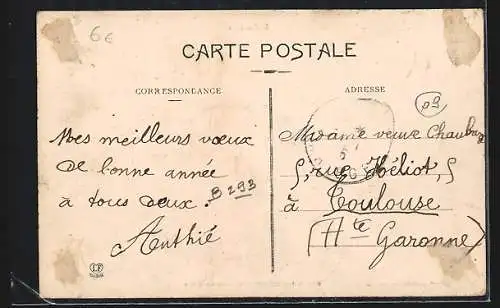 6€
CARTE POSTALE
CORRESPONDANCE
ADRESSE
Mes meilleurs vœux
de bonne année
à tous deux.
B 293
Madame veuve
5, rue Héliot, 5
à Toulouse
(Hte Garonne)